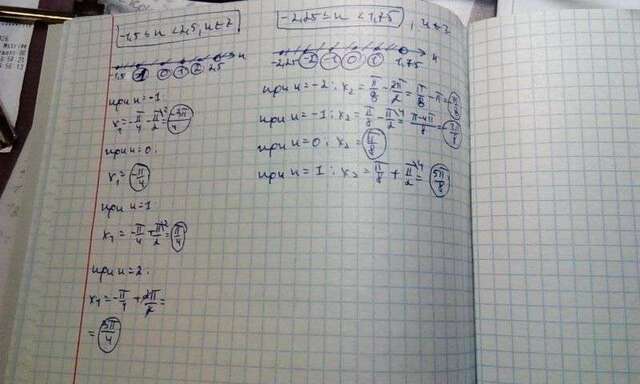 -1,5 ≤ n < 2,5, n ∈ Z
-1,5 -1 0 1 2 2,5 n
при n = -1:
x₁ = -π/4 - π/2 = -3π/4
при n = 0:
x₁ = -π/4
при n = 1
x₁ = -π/4 + π/2 = π/4
при n = 2:
x₁ = -π/4 + 2π/2 =
= 3π/4
-2,25 ≤ n < 1,75, n ∈ Z
-2,25 -2 -1 0 1 1,75 n
при n = -2: x₂ = π/8 - 2π/2 = π/8 - π =
при n = -1: x₂ = π/8 - π/2 = π-4π/8 = -3π/8
при n = 0: x₂ = π/8
при n = 1: x₂ = π/8 + π/2 = 5π/8